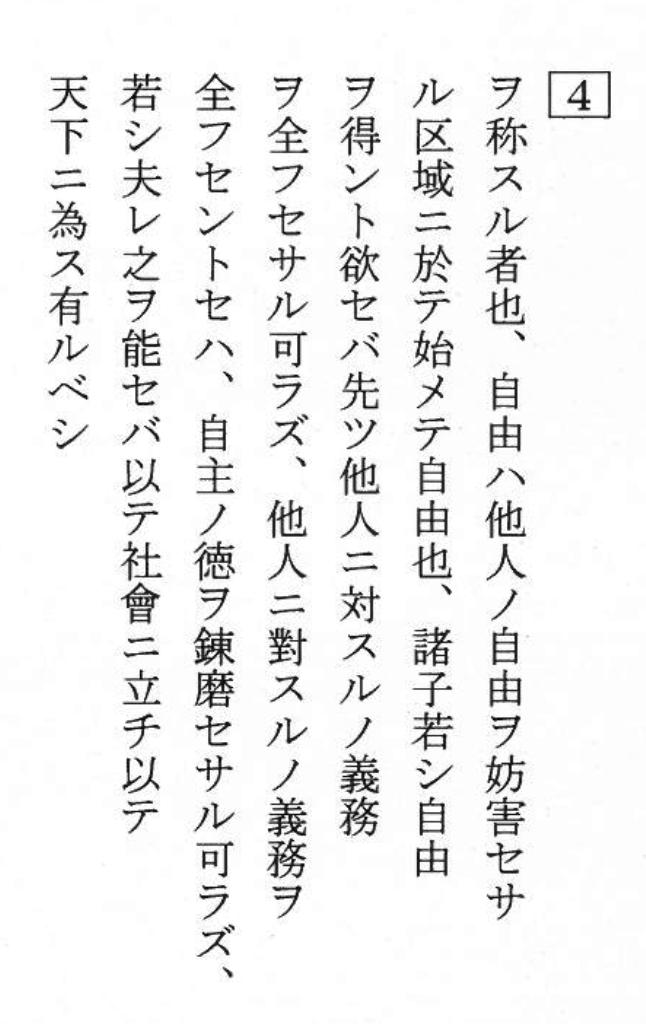 4
ヲ称スル者也、自由ハ他人ノ自由ヲ妨害セサ
ル区域ニ於テ始メテ自由也、諸子若シ自由
ヲ得ント欲セバ先ツ他人ニ対スルノ義務
ヲ全フセサル可ラズ、他人ニ對スルノ義務ヲ
全フセントセハ、自主ノ徳ヲ錬磨セサル可ラズ、
若シ夫レ之ヲ能セバ以テ社會ニ立チ以テ
天下ニ為ス有ルベシ